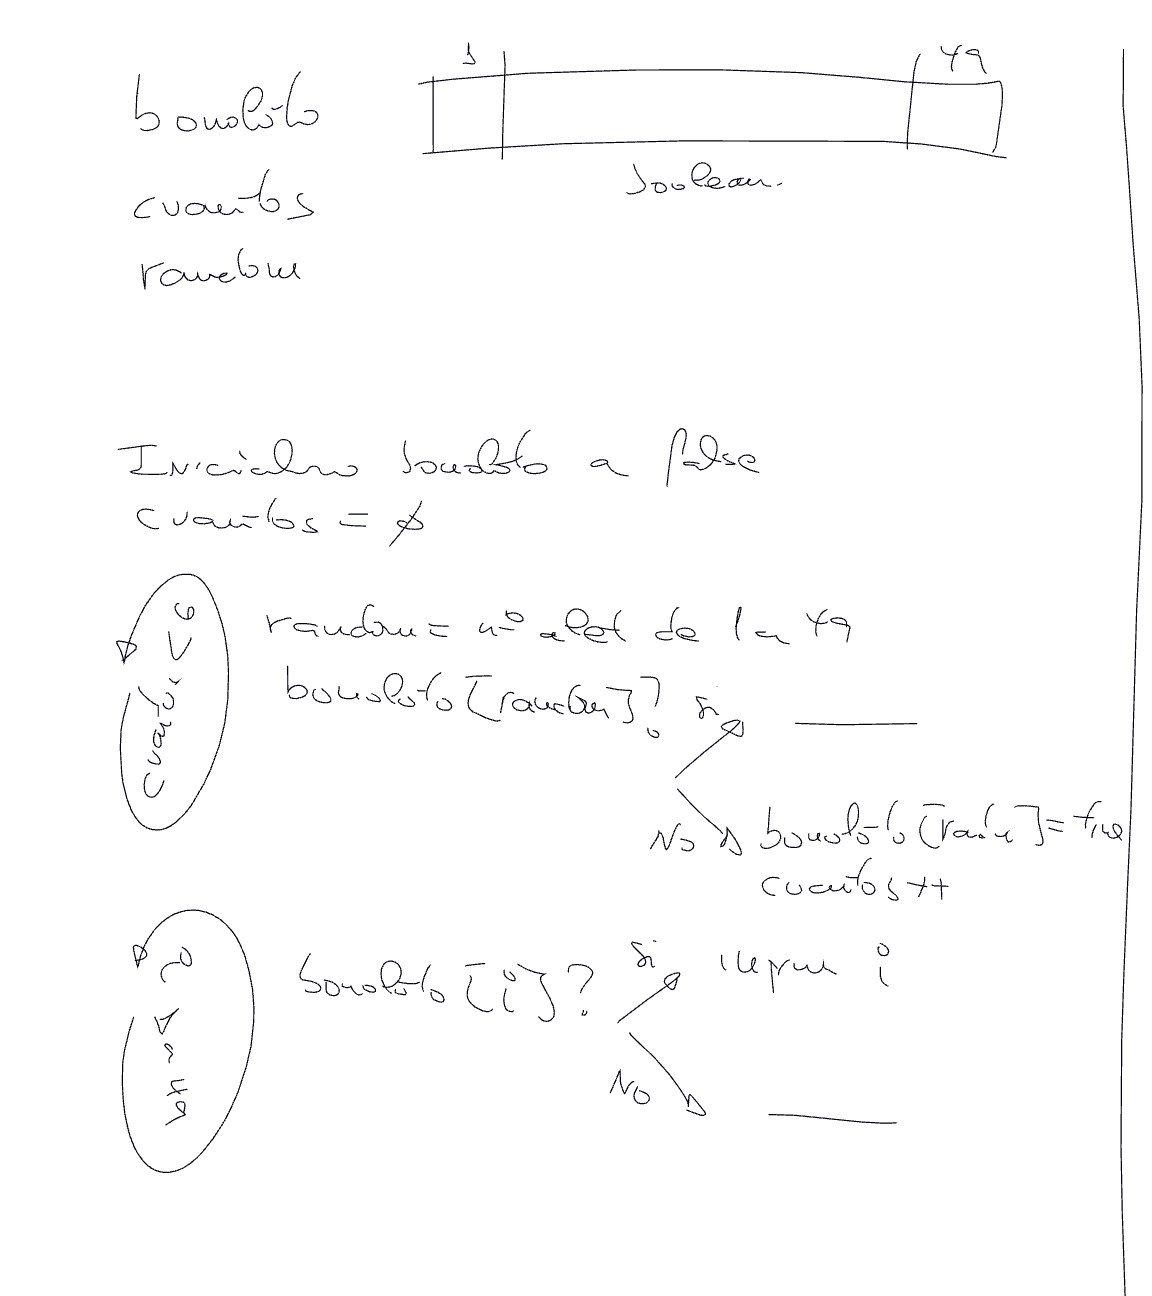 1 49
bonoloto
boolean.
cuantos
random
Inicializo bonoloto a false
cuantos = ø
cuantos < 6
random = nº aleat de 1 a 49
bonoloto [random]? si
No bonoloto [random] = true
cuantos++
i 1 a 49
bonoloto [i]? si imprimir i
No